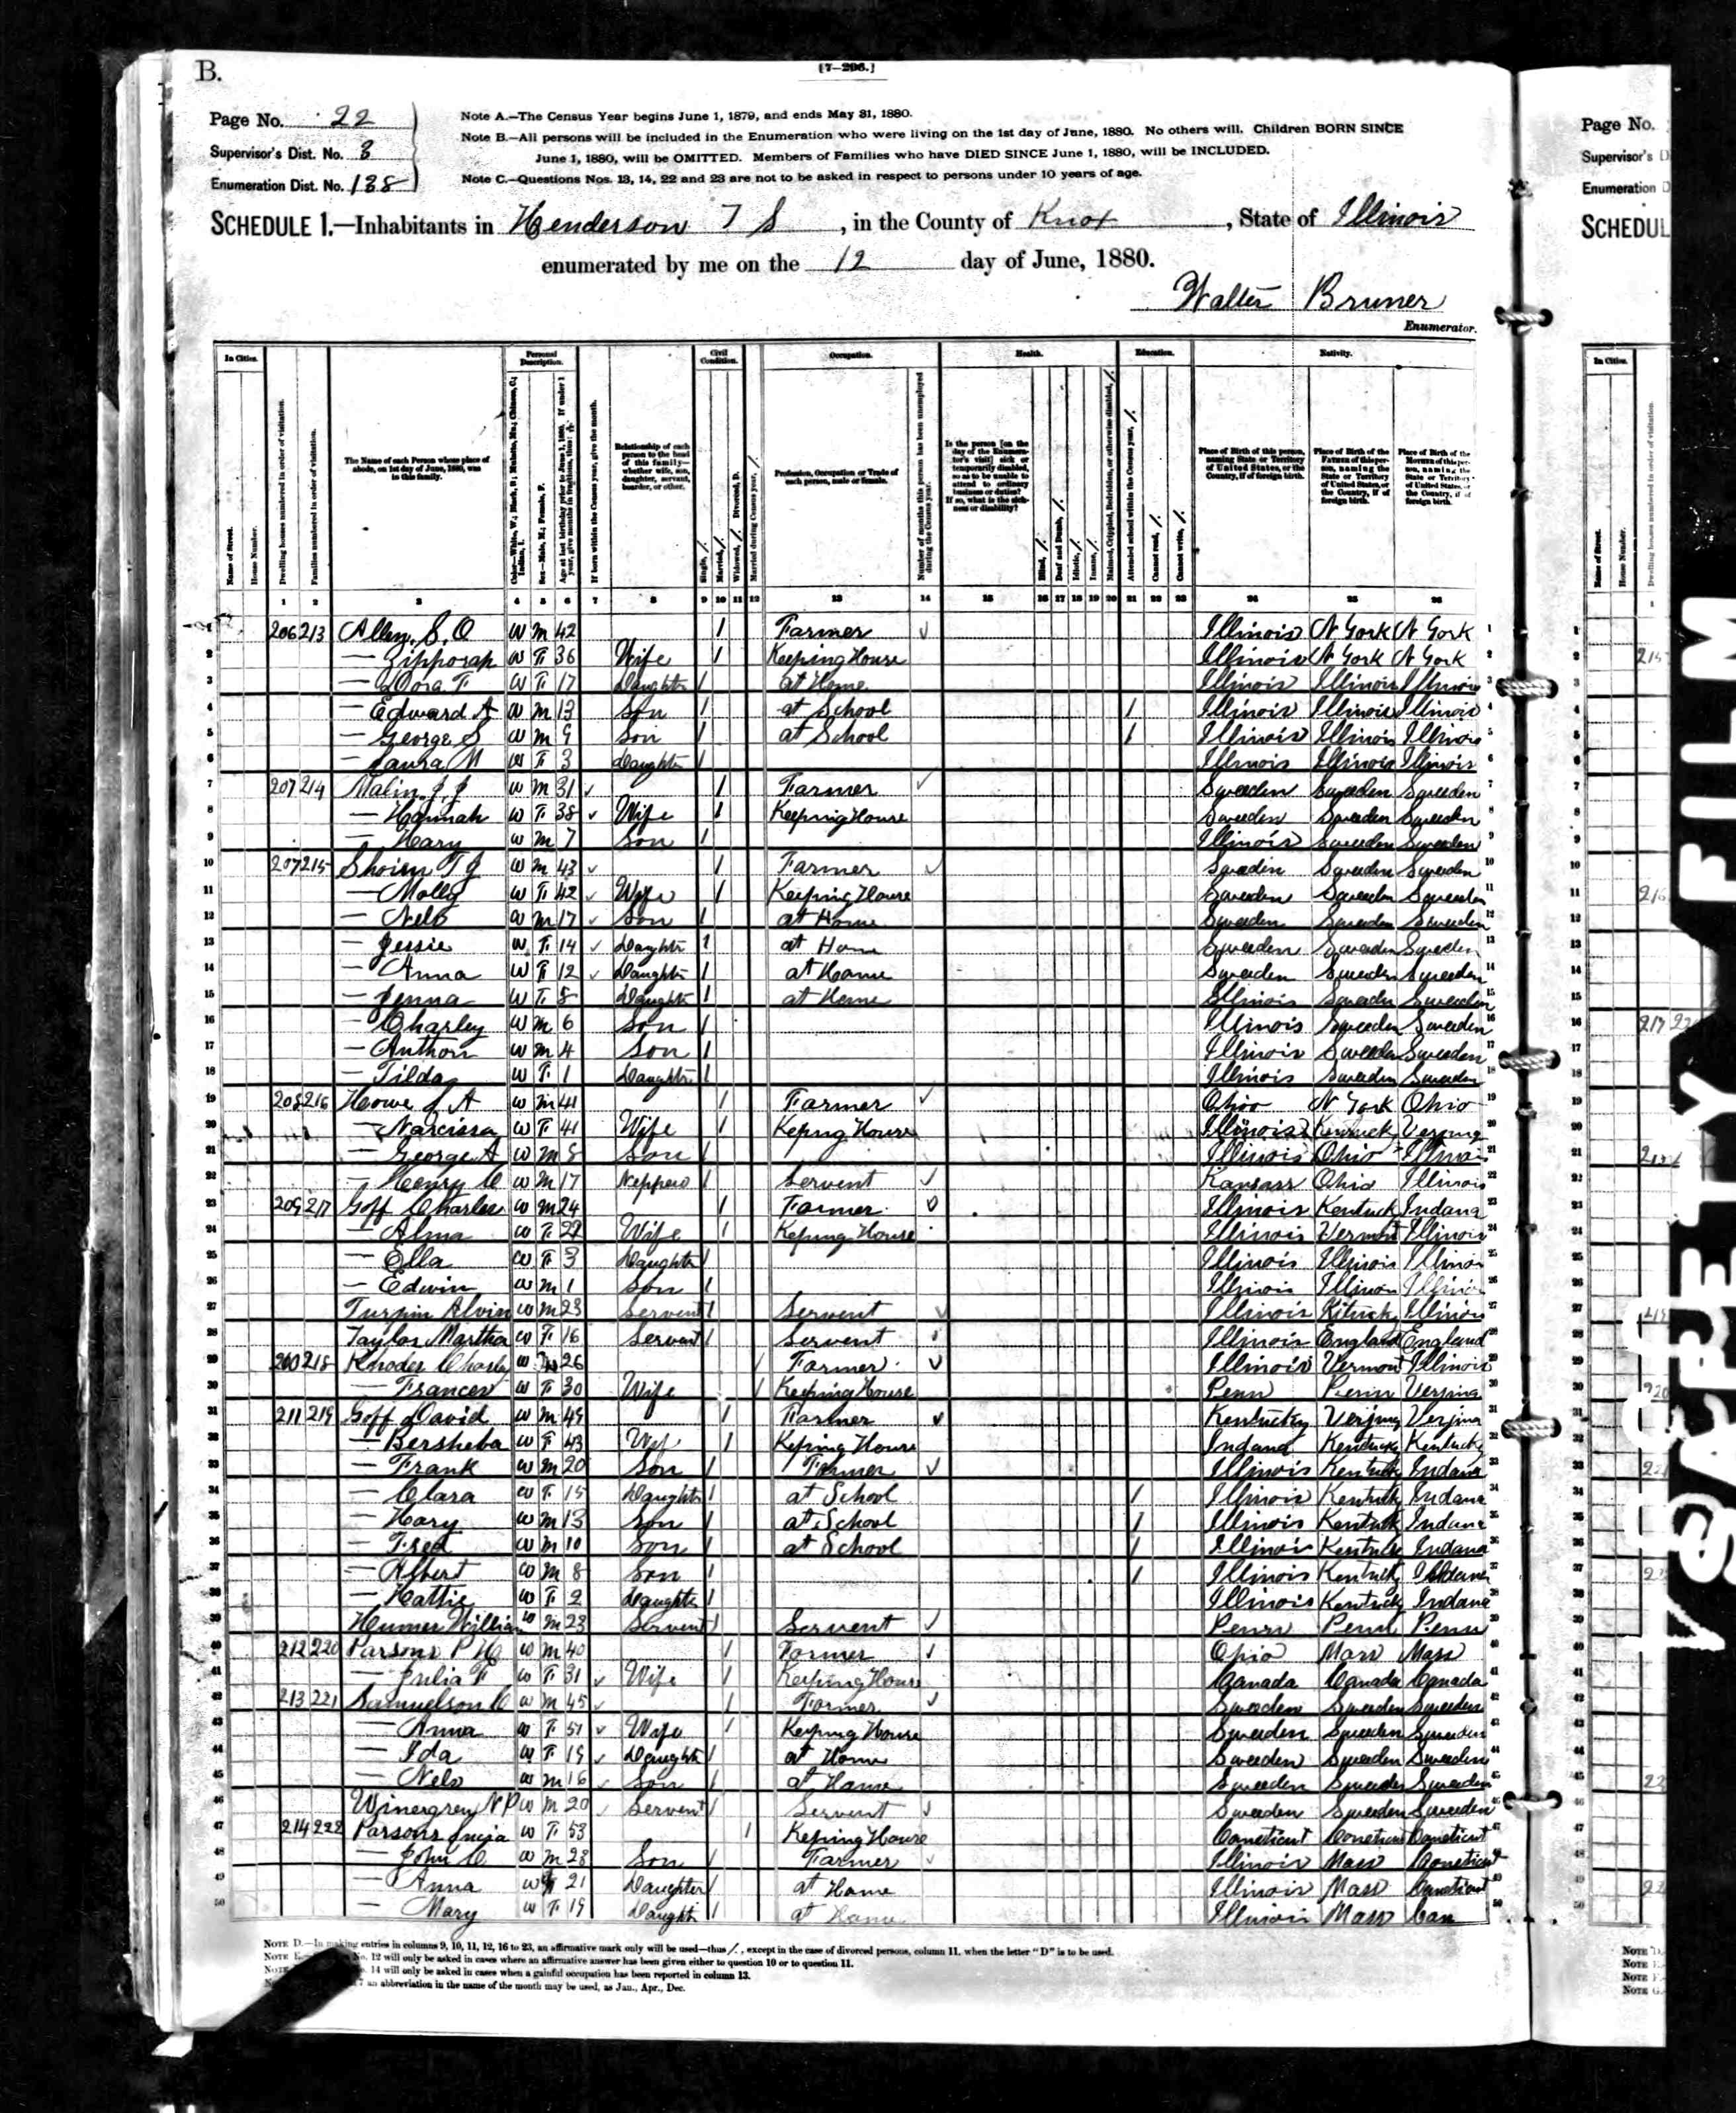 B.
[7-296.]
Page No. 22
Supervisor's Dist. No. 3
Enumeration Dist. No. 138
Note A.—The Census Year begins June 1, 1879, and ends May 31, 1880.
Note B.—All persons will be included in the Enumeration who were living on the 1st day of June, 1880. No others will. Children BORN SINCE
June 1, 1880, will be OMITTED. Members of Families who have DIED SINCE June 1, 1880, will be INCLUDED.
Note C.—Questions Nos. 13, 14, 22 and 23 are not to be asked in respect to persons under 10 years of age.
SCHEDULE 1.—Inhabitants in Henderson T S, in the County of Knox, State of Illinois
enumerated by me on the 12 day of June, 1880.
Walter Bruner
Enumerator.
In Cities. Personal Description. Civil Condition. Occupation. Health. Education. Nativity.
Name of Street. House Number. Dwelling houses numbered in order of visitation. Families numbered in order of visitation.
The Name of each Person whose place of abode, on 1st day of June, 1880, was in this family.
Relationship of each person to the head of this family—whether wife, son, daughter, servant, boarder, or other.
Profession, Occupation or Trade of each person, male or female.
1 2 3 4 5 6 7 8 9 10 11 12 13 14 15 16 17 18 19 20 21 22 23 24 25 26
1 206 213 Allen, S. O W M 42 1 Farmer Illinois N York N York 1
2 — Zipporah W F 36 Wife 1 Keeping House Illinois N York N York 2
3 — Dora F W F 17 Daughter 1 at Home Illinois Illinois Illinois 3
4 — Edward A W M 13 Son 1 at School 1 Illinois Illinois Illinois 4
5 — George S W M 9 Son 1 at School 1 Illinois Illinois Illinois 5
6 — Laura M W F 3 Daughter 1 Illinois Illinois Illinois 6
7 207 214 Malin J J W M 31 1 Farmer Sweeden Sweeden Sweeden 7
8 — Hannah W F 38 Wife 1 Keeping House Sweeden Sweeden Sweeden 8
9 — Hary W M 7 Son 1 Illinois Sweeden Sweeden 9
10 207 215 T J W M 43 1 Farmer Sweeden Sweeden Sweeden 10
11 — Molly W F 42 Wife 1 Keeping House Sweeden Sweeden Sweeden 11
12 — Nels W M 17 Son 1 at Home Sweeden Sweeden Sweeden 12
13 — Jessie W F 14 Daughtr 1 at Home Sweeden Sweeden Sweeden 13
14 — Anna W F 12 Daughtr 1 at Home Sweeden Sweeden Sweeden 14
15 — Jenna W F 8 Daughtr 1 at Home Illinois Sweeden Sweeden 15
16 — Charley W M 6 Son 1 Illinois Sweeden Sweeden 16
17 — Anthon W M 4 Son 1 Illinois Sweeden Sweeden 17
18 — Tilda W F 1 Daughtr 1 Illinois Sweeden Sweeden 18
19 208 216 Howe J A W M 41 1 Farmer Ohio N York Ohio 19
20 — Narcissa W F 41 Wife 1 Keping House Illinois Kentucky 20
21 — George A W M 8 Son 1 Illinois Ohio Illinois 21
22 — Henry C W M 17 Neppew 1 Servent Kansas Ohio Illinois 22
23 209 217 Goff Charles W M 24 1 Farmer Illinois Kentuck Indana 23
24 — Alma W F 22 Wife 1 Keping House Illinois Vermont Illinois 24
25 — Ella W F 3 Daughtr 1 Illinois Illinois Illinois 25
26 — Edwin W M 1 Son 1 Illinois Illinois Illinois 26
27 Turpin Alvin W M 23 Servent 1 Servent Illinois Illinois 27
28 Taylor Martha W F 16 Servent 1 Servent Illinois England England 28
29 218 Rhodes Charly W M 26 Farmer Illinois Vermont Illinois 29
30 — Frances W F 30 Wife Keeping House Penn Penn Verjina 30
31 211 219 Goff David W M 49 1 Farmer Kentucky Verjina Verjina 31
32 — Bersheba W F 43 Wife 1 Keping House Indana Kentucky Kentucky 32
33 — Frank W M 20 Son 1 Farmer Illinois Kentuck Indana 33
34 — Clara W F 15 Daughtr 1 at School 1 Illinois Kentuck Indana 34
35 — Hary W M 13 Son 1 at School 1 Illinois Kentuck Indana 35
36 — Fred W M 10 Son 1 at School 1 Illinois Kentucky Indana 36
37 — Albert W M 8 Son 1 1 Illinois Kentucky Indana 37
38 — Hattie W F 2 Daughtr 1 Illinois Kentucky Indana 38
39 Humer William W M 23 Servent 1 Servent Penn Penn Penn 39
40 212 220 Parsons P H W M 40 1 Farmer Ohio Mass Mass 40
41 — Julia F W F 31 Wife 1 Keeping House Canada Canada Canada 41
42 213 221 Samuelson C W M 45 1 Farmer Sweeden Sweeden Sweeden 42
43 — Anna W F 51 Wife 1 Keping House Sweeden Sweeden Sweeden 43
44 — Ida W F 19 Daughtr 1 at Home Sweeden Sweeden Sweeden 44
45 — Nels W M 16 Son 1 at Home Sweeden Sweeden Sweeden 45
46 Winergren N P W M 20 Servent 1 Servent Sweeden Sweeden Sweeden 46
47 214 222 Parsons W F 53 1 Keping House Coneticut Coneticut Coneticut 47
48 — John C W M 28 Son 1 Farmer Illinois Mass Coneticut 48
49 — Anna W F 21 Daughter 1 at Home Illinois Mass Coneticut 49
50 — Mary W F 19 Daughtr 1 at Home Illinois Mass Con 50
Note D.—In making entries in columns 9, 10, 11, 12, 16 to 23, an affirmative mark only will be used—thus /, except in the case of divorced persons, column 11, when the letter "D" is to be used.
No. 12 will only be asked in cases where an affirmative answer has been given either to question 10 or to question 11.
14 will only be asked in cases when a gainful occupation has been reported in column 13.
an abbreviation in the name of the month may be used, as Jan., Apr., Dec.
Page No.
Supervisor's D
Enumeration D
SCHEDUL
In Cities.
SAFETY FILM